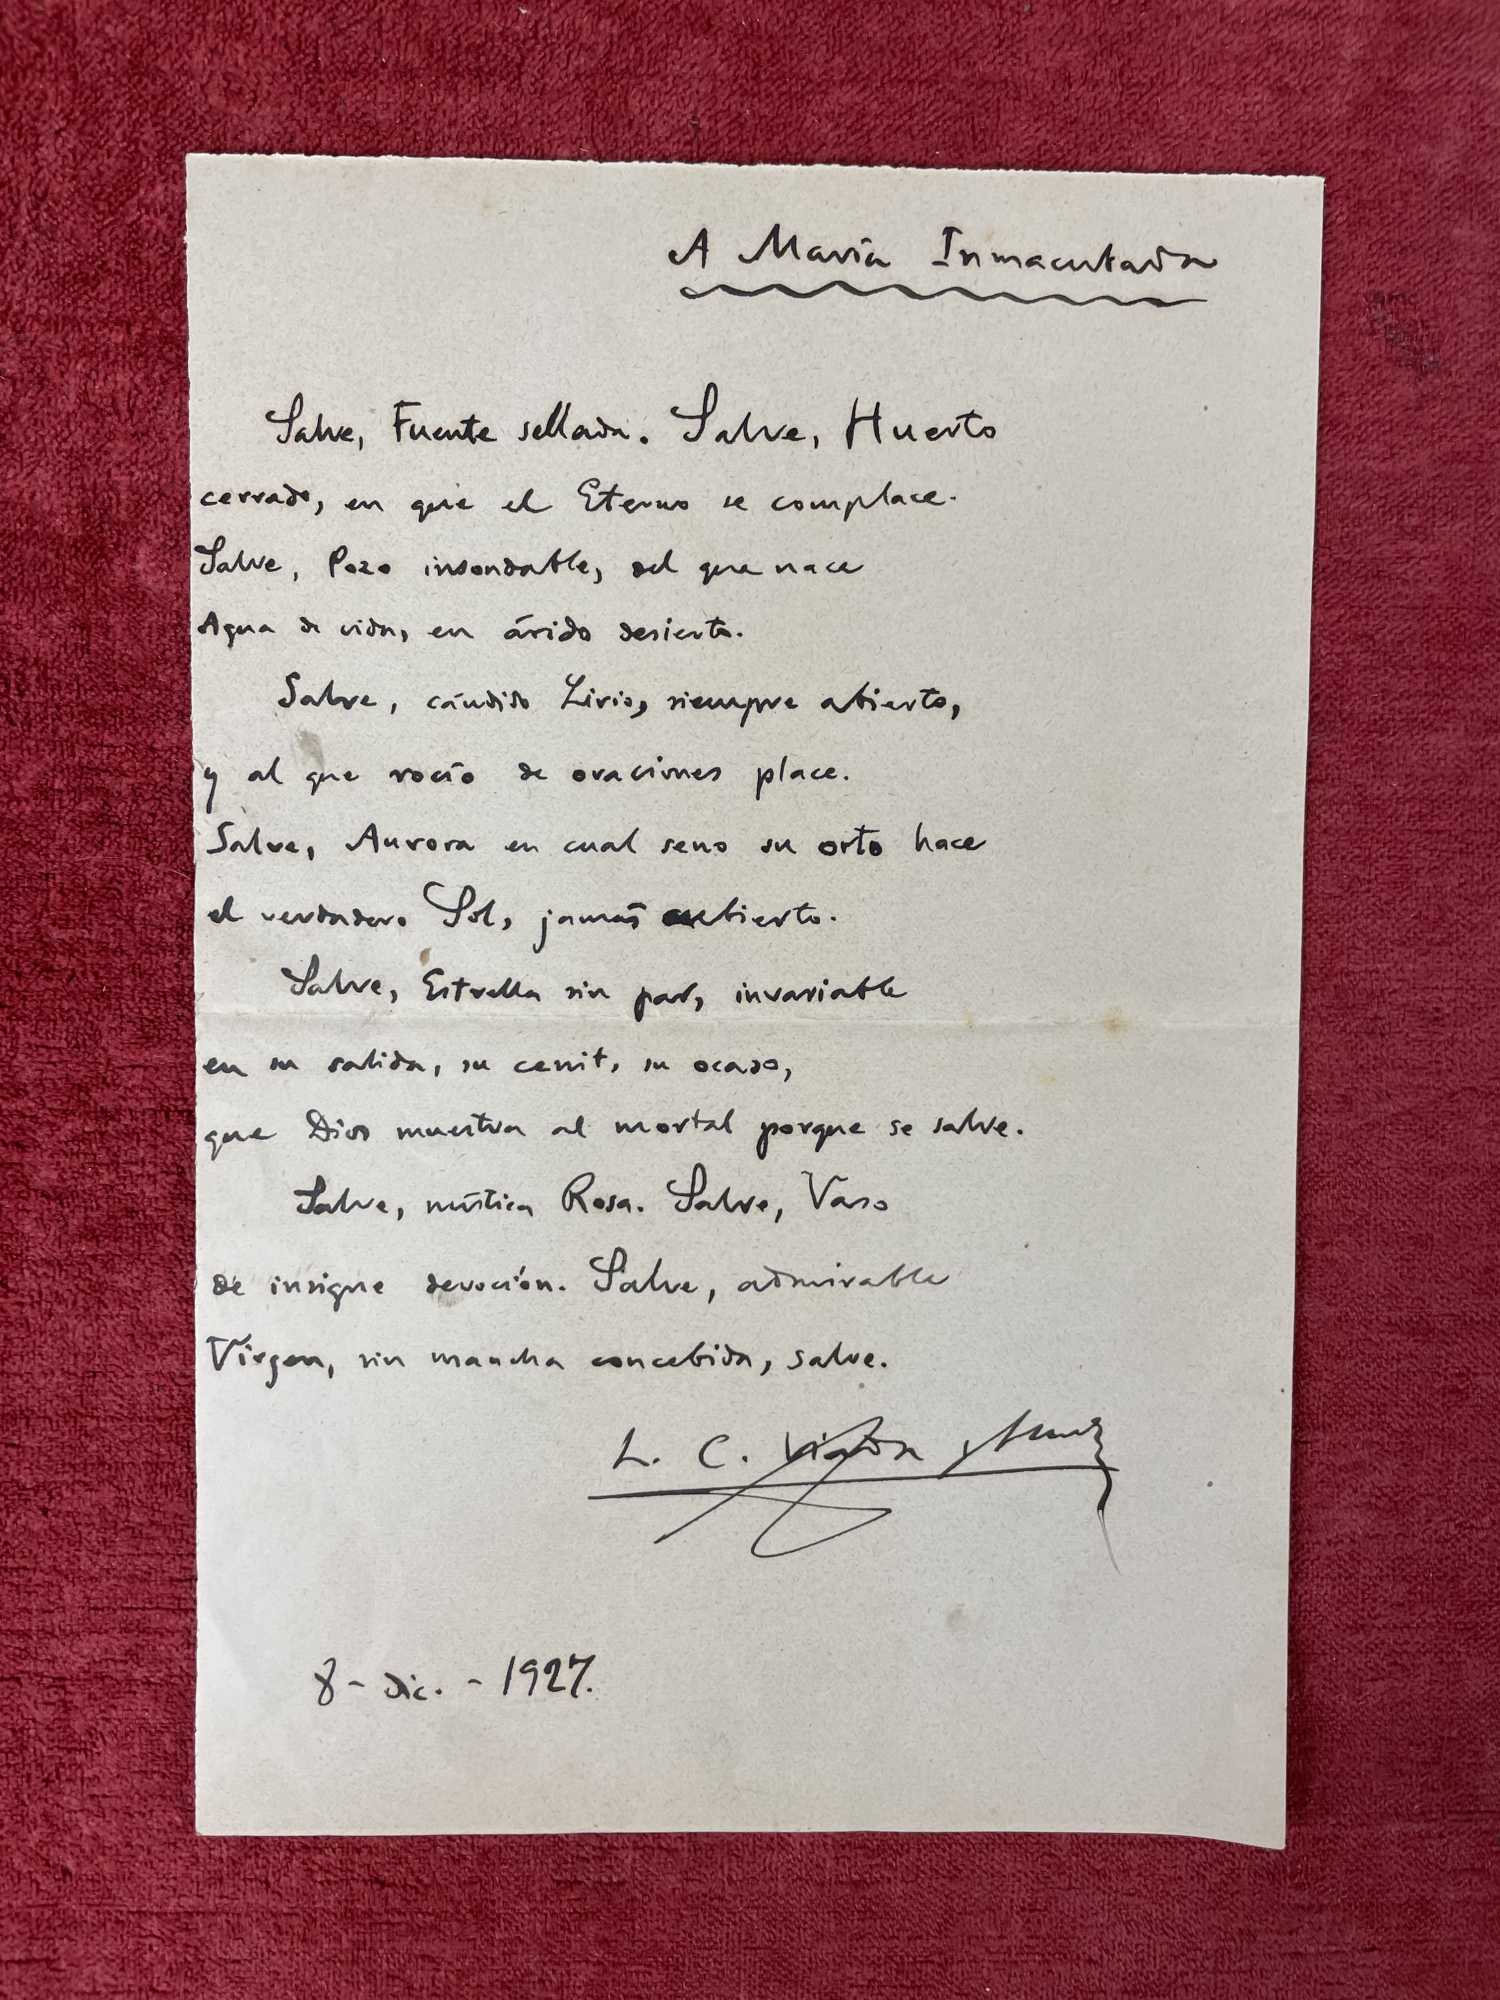 A María Inmaculada
Salve, Fuente sellada. Salve, Huerto
cerrado, en que el Eterno se complace.
Salve, Pozo insondable, del que nace
Agua de vida, en árido desierto.
Salve, cándido Lirio, siempre abierto,
y al que rocío de oraciones place.
Salve, Aurora en cual seno su orto hace
el verdadero Sol, jamás cubierto.
Salve, Estrella sin par, invariable
en su salida, su cenit, su ocaso,
que Dios muestra al mortal porque se salve.
Salve, mística Rosa. Salve, Vaso
de insigne devoción. Salve, admirable
Virgen, sin mancha concebida, salve.
L. C. Viada y
8 - dic. - 1927.